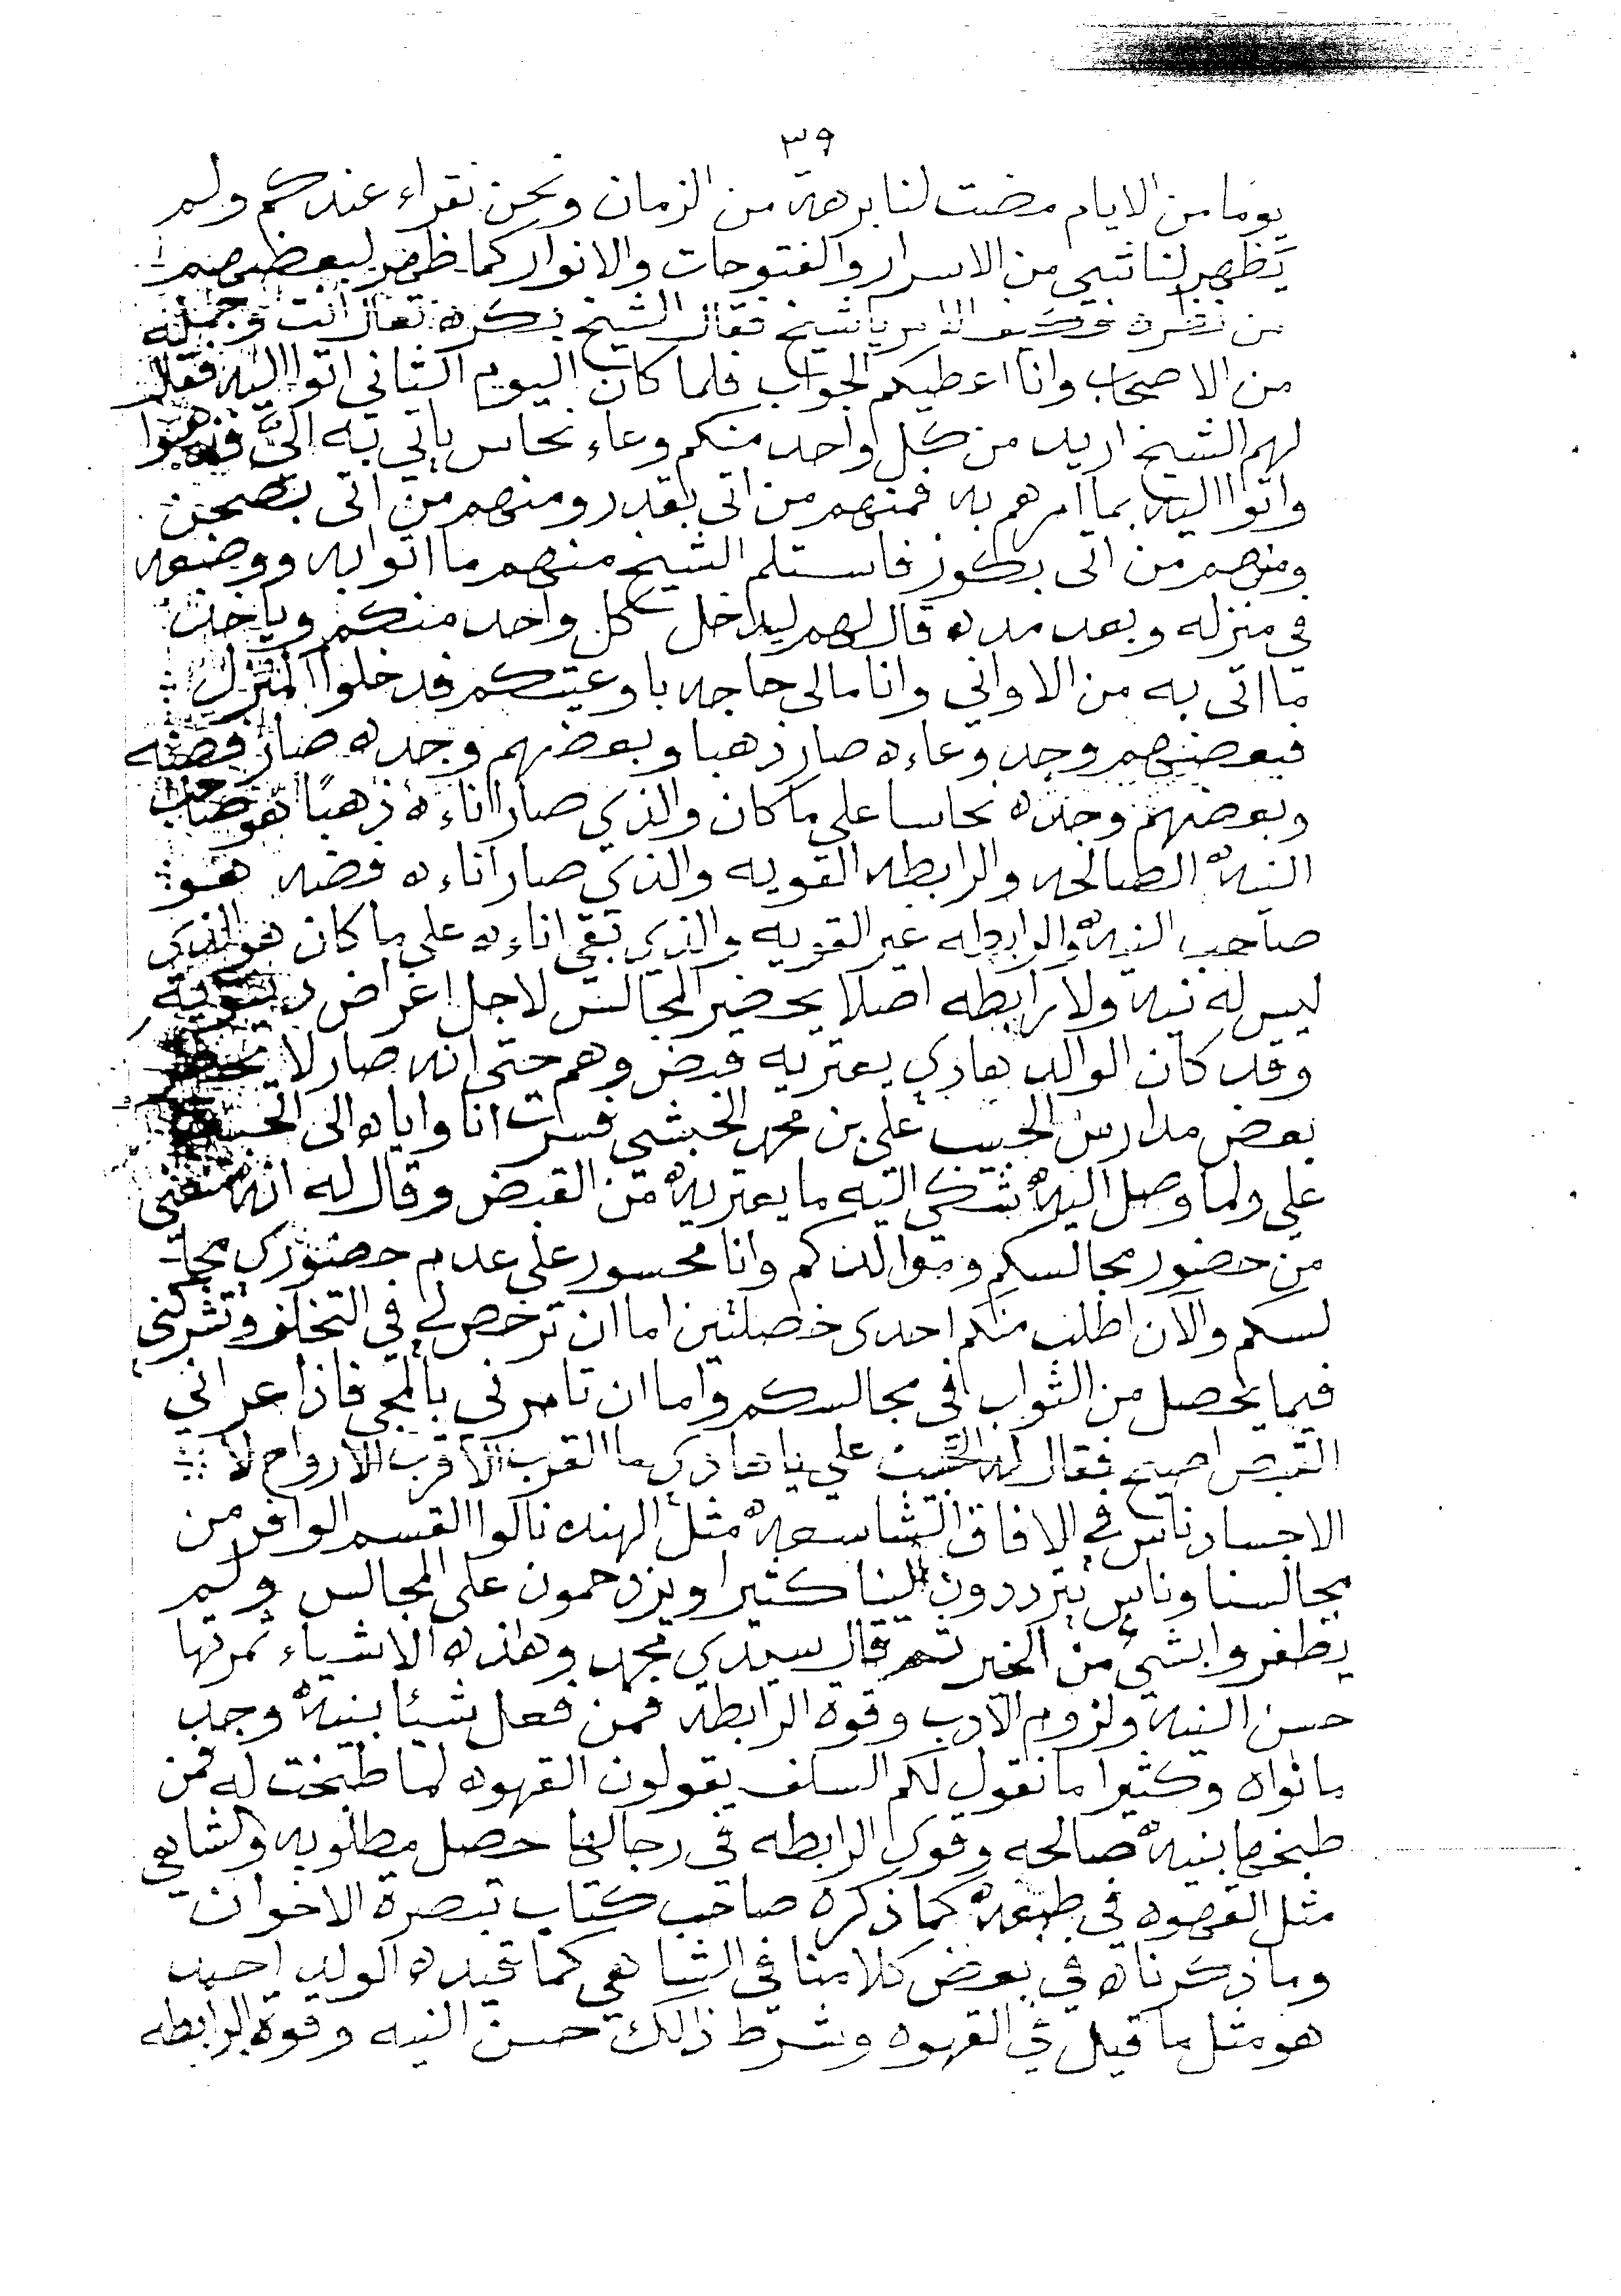 ٣٩
يوما من الايام مضت لنا برهة من الزمان ونحن نقراء عندكم ولم
يظهر لنا شي من الاسرار والفتوحات والانوار كما ظهر لبعضهم
من فكيف يا شيخ فقال الشيخ بكره تعال انت وجملة
من الاصحاب وانا اعطيكم الجواب فلما كان اليوم الثاني اتوا اليه فقال
لهم الشيخ اريد من كل واحد منكم وعاء نحاس ياتي به اليَّ فذهبوا
واتوا اليه بما امرهم به فمنهم من اتى بقدر ومنهم من اتى بصحن
ومنهم من اتى بكوز فاستلم الشيخ منهم ما اتوا به ووضعه
في منزله وبعد مده قال لهم ليدخل كل واحد منكم وياخذ
ما اتى به من الاواني وانا مالي حاجه باوعيتكم فدخلوا المنزل
فبعضهم وجد وعاءه صار ذهبا وبعضهم وجده صار فضه
وبعضهم وجده نحاسا على ما كان والذي صار اناءه ذهبًا هو صاحب
النيه الصالحه والرابطه القويه والذي صار اناءه فضه هو
صاحب النيه والرابطه غير القويه والذي بقي اناءه على ما كان هو الذي
ليس له نيه ولا رابطه اصلا يحضر المجالس لاجل اغراض دنيويه
وقد كان الوالد هادي يعتريه قبض وهم حتى انه صار لا يحضر
بعض مدارس الحبيب علي بن محمد الحبشي فسرت انا واياه الى الحبيب
علي ولما وصل اليه شكى اليه ما يعتريه من القبض وقال له انه منعني
من حضور مجالسكم وموالدكم وانا محسور على عدم حضوري مجا
لسكم والآن اطلب منكم احدى خصلتين اما ان ترخص لي في التخلف وتشركني
فيما يحصل من الثواب في مجالسكم واما ان تامرني بالمجي فاذا عراني
القبض اصيح فقال له الحبيب علي يا هادي ما القرب الا قرب الارواح لا
الاجساد ناس في الافاق الشاسعه مثل الهند نالوا القسم الوافر من
مجالسنا وناس يترددون الينا كثيرا ويزدحمون على المجالس ولم
يظفروا بشي من الخير ثم قال سيدي محمد وهاذه الاشياء ثمرتها
حسن النيه ولزوم الادب وقوة الرابطه فمن فعل شيئا بنيه وجد
ما نواه وكثيرا ما نقول لكم السلف يقولون القهوه لما طبخت له فمن
طبخها بنيه صالحه وقوي الرابطه في رجالها حصل مطلوبه والشاهي
مثل القهوه في طبعه كما ذكره صاحب كتاب تبصرة الاخوان
وما ذكرناه في بعض كلامنا في الشاهي كما قيده الولد احمد
هو مثل ما قيل في القهوه وشرط ذالك حسن النيه وقوة الرابطه